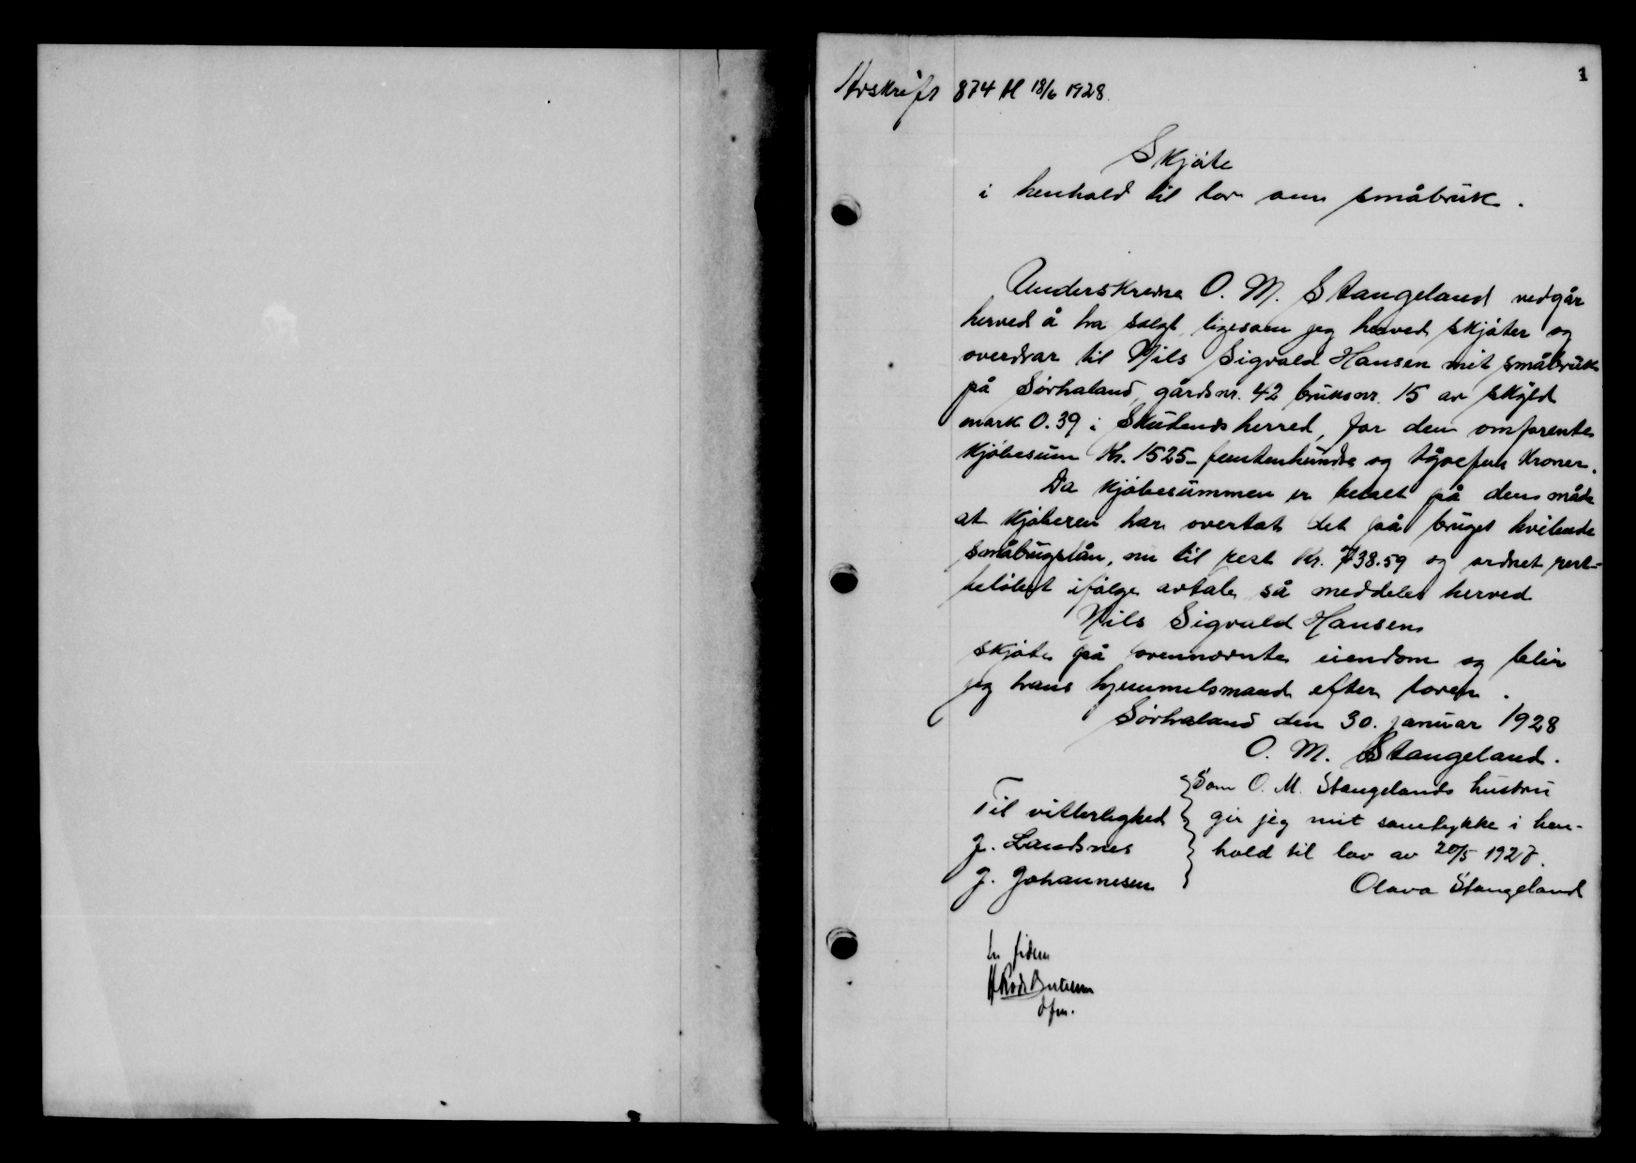 1
Avskrift 874 H 18/6 1928.
Skjøte
i henhold til lov om småbruk.
Underskrevne O. M. Stangeland vedgår
herved å ha solgt ligesom jeg herved skjøter og
overdrar til Nils Sigvald Hansen mit småbruk
på Sørhaland, gårdsnr. 42 bruksnr. 15 av skyld
mark 0.39 i Skudenes herred, for den omforente
kjøbesum Kr. 1525 - femtenhundre og tyvefem kroner.
Da kjøbesummen er betalt på den måte
at kjøberen har overtat det på bruget hvilende
småbrugslån, nu til rest Kr. 738.59 og ordnet rest-
beløbet ifølge avtale så meddeles herved
Nils Sigvald Hansen
skjøte på ovennævnte eiendom og blir
jeg hans hjemmelsmand efter loven.
Sørhaland den 30. januar 1928
O. M. Stangeland.
Til vitterlighed
J. Landsnes
J. Johannesen
Som O. M. Stangelands hustru
gir jeg mit samtykke i hen-
hold til lov av 20/5 1927.
Olava Stangeland
In fidem